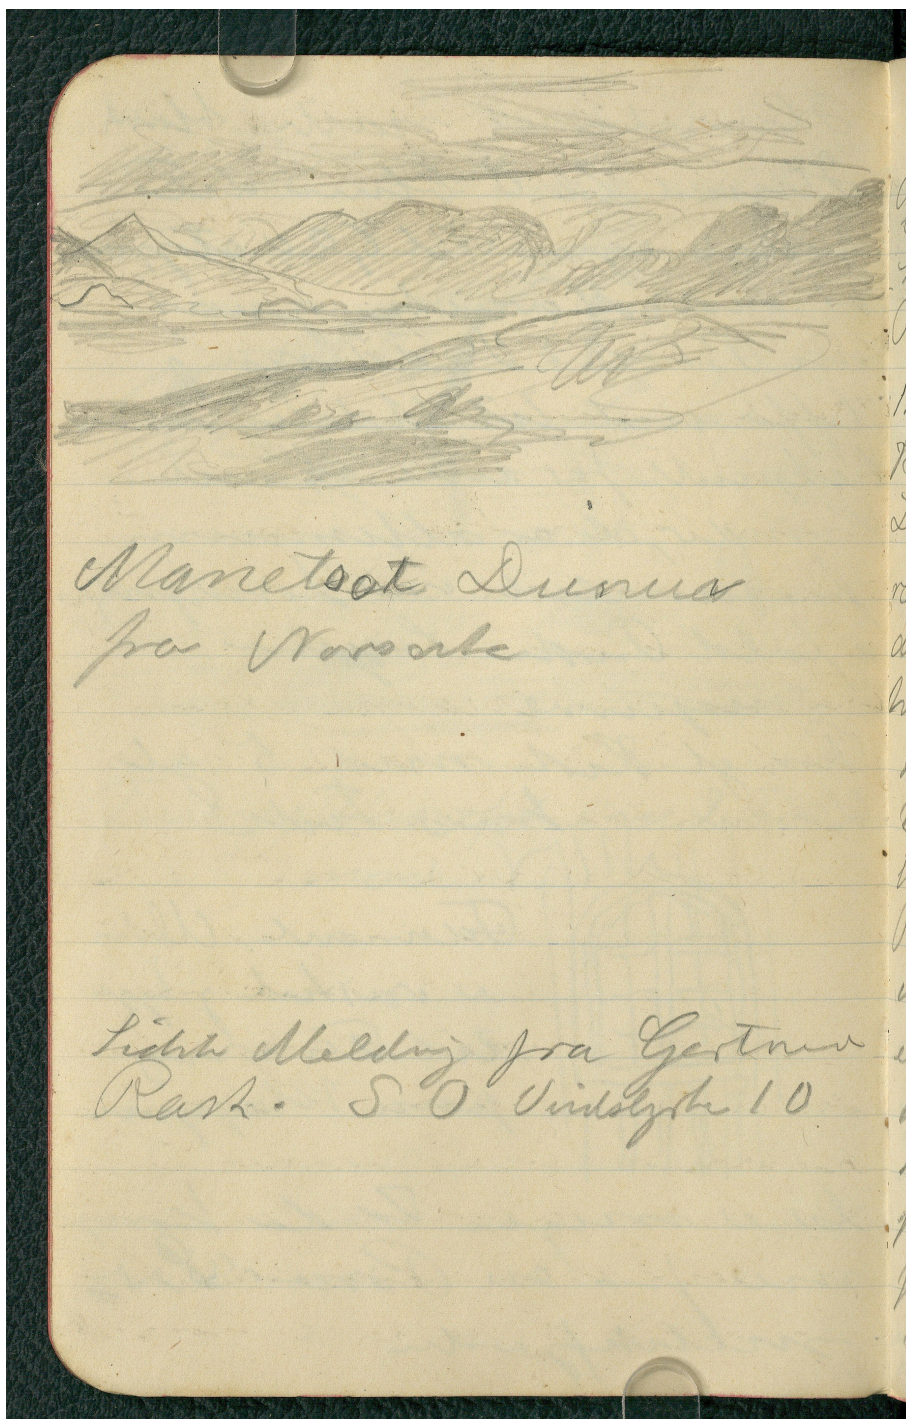 Manetsot Dunua
fra Norsak
Sidste Melding fra Gartner
Rask. S O Vindstyrke 10